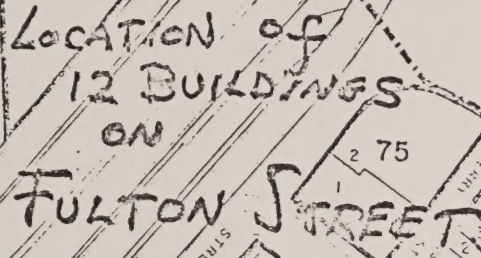 LOCATION of
12 BUILDINGS
ON
FULTON STREET
2 75
1
STRE
2